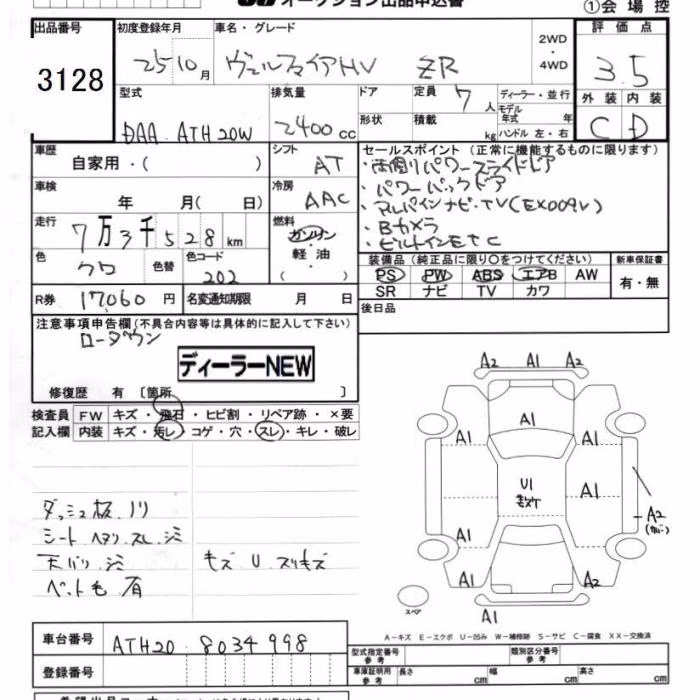 オークション出品申込書
①会場控
出品番号 初度登録年月 車名・グレード 評価点
3128 25 10月 ヴェルファイアHV ZR 2WD・4WD 3.5
型式 排気量 ドア 定員 7人 ディーラー・並行 外装 内装
DAA.ATH20W 2400cc 形状 積載 kg モデル年式 年 ハンドル 左・右 C D
車歴 シフト セールスポイント(正常に機能するものに限ります)
自家用・( ) AT ・両側リパワースライドドア
車検 冷房 ・パワーバックドア
年 月( 日) AAC ・アルパインナビ・TV(EX009V)
走行 燃料 ・Bカメラ
7万3千528km ガソリン・軽油・( ) ・ビルトインETC
色 色替 色コード 装備品(純正品に限り○をつけてください) 新車保証書
クロ 202 PS PW ABS エアB AW 有・無
SR ナビ TV カワ
R券 17060円 名変通知期限 月 日 後日品
注意事項申告欄(不具合内容等は具体的に記入して下さい)
ローダウン
ディーラーNEW
修復歴 有 〔箇所 〕
検査員 FW キズ・飛石・ヒビ割・リペア跡・×要
記入欄 内装 キズ・汚レ・コゲ・穴・スレ・キレ・破レ
ダッシュ板ノリ
シート ヘタリ スレ シミ
天バリ シミ キズ U スリキズ
ペット毛 有
A2 A1 A2
A1
A1 A1
U1
A1
A2
A1
A1 A2
スペア
A1
A-キズ E-エクボ U-凹み W-補修跡 S-サビ C-腐食 XX-交換済
車台番号 ATH20-8034998 型式指定番号 参考 類別区分番号 参考
登録番号 車庫証明用 参考 長さ cm 幅 cm 高さ cm